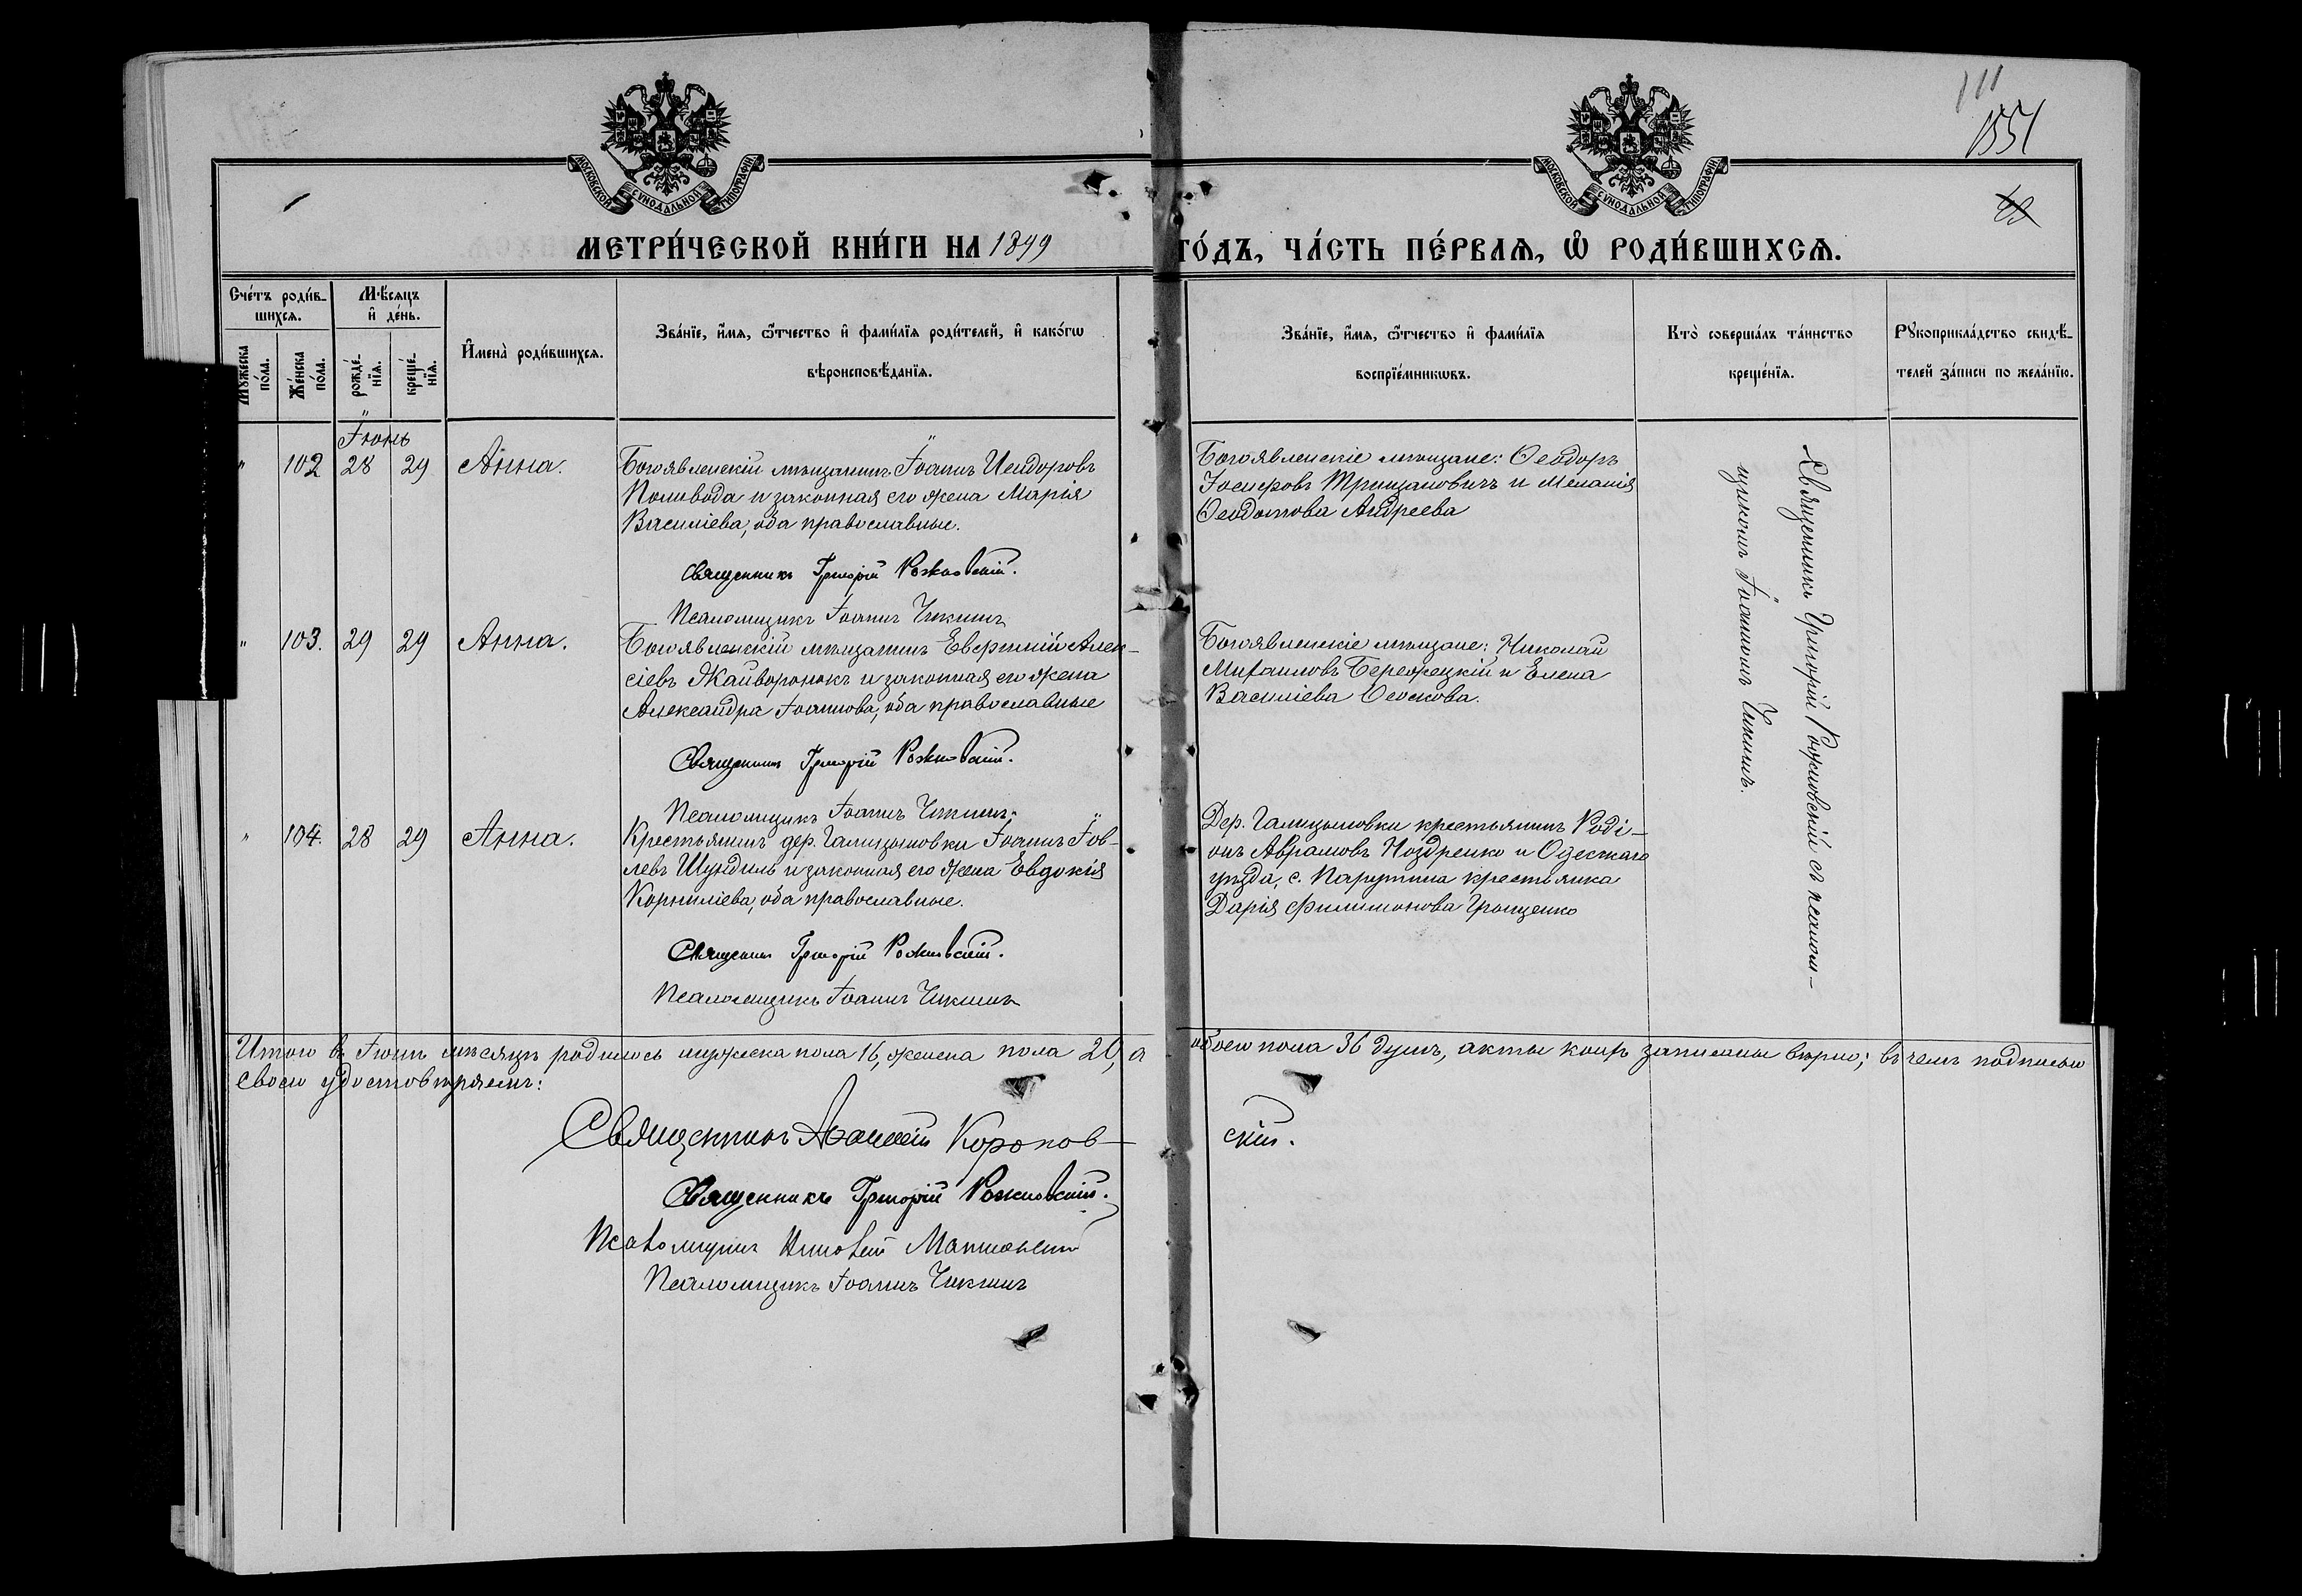 111
1551
МОСКОВСКОЙ СѴНОДАЛЬНОЙ ТИПОГРАФІИ
МОСКОВСКОЙ СѴНОДАЛЬНОЙ ТИПОГРАФІИ
МЕТРИ́ЧЕСКОЙ КНИ́ГИ НА 1899 ГО́ДЪ, ЧА́СТЬ ПЕ́РВАѦ, Ѡ҆ РОДИ́ВШИХСѦ.
Сче́тъ роди́в-
шихсѧ.
Мꙋжеска по́ла.
Же́нска по́ла.
Мѣ́сѧцъ
и҆ де́нь.
рожде́-
нїѧ.
креще́-
нїѧ.
И҆мена̀ роди́вшихсѧ.
Зва́нїе, и҆́мѧ, ѻ҆́тчество и҆ фами́лїѧ роди́телей, и҆ како́гѡ
вѣроисповѣ́данїѧ.
Зва́нїе, и҆́мѧ, ѻ҆́тчество и҆ фами́лїѧ
воспрїе́мникѡвъ.
Кто̀ соверша́лъ та́инство
креще́нїѧ.
Рꙋкоприкла́дство свидѣ́-
телей за́писи по жела́нїю.
Іюнь
" 102 28 29 Анна.
Богоявленскій мѣщанинъ Іоаннъ Исидоровъ
Поливода и законная его жена Марія
Василіева, оба православные.
Священникъ Григорій Рожновскій.
Псаломщикъ Іоаннъ Чикинъ
Богоявленскіе мѣщане: Ѳеодоръ
Іосифовъ Трищановичъ и Меланія
Ѳеодотова Андреева
" 103. 29 29 Анна.
Богоявленскій мѣщанинъ Евфимій Алек-
сіевъ Жайворонокъ и законная его жена
Александра Іоаннова, оба православные
Священникъ Григорій Рожновскій.
Псаломщикъ Іоаннъ Чикинъ
Богоявленскіе мѣщане: Николай
Михаиловъ Бережецкій и Елена
Василіева
" 104. 28 29 Анна.
Крестьянинъ дер. Галицыновки Іоаннъ Іов-
левъ Шундиль и законная его жена Евдокія
Корниліева, оба православные.
Священникъ Григорій Рожновскій.
Псаломщикъ Іоаннъ Чикинъ
Дер. Галицыновки крестьянинъ Роді-
онъ Аврамовъ Ноздренко и Одесскаго
уѣзда, с. Парутина крестьянка
Дарія Филимонова Грищенко
Священникъ Григорій Рожновскій съ псалом-
щикомъ Іоанномъ Чикинъ.
Итого въ Іюнѣ мѣсяцѣ родилось мужеска пола 16, женска пола 20, а обоего пола 36 душъ, акты коихъ записаны вѣрно; въ чемъ подписью
своею удостовѣряемъ:
Священникъ Короновскій.
Священникъ Григорій Рожновскій.
Псаломщикъ
Псаломщикъ Іоаннъ Чикинъ